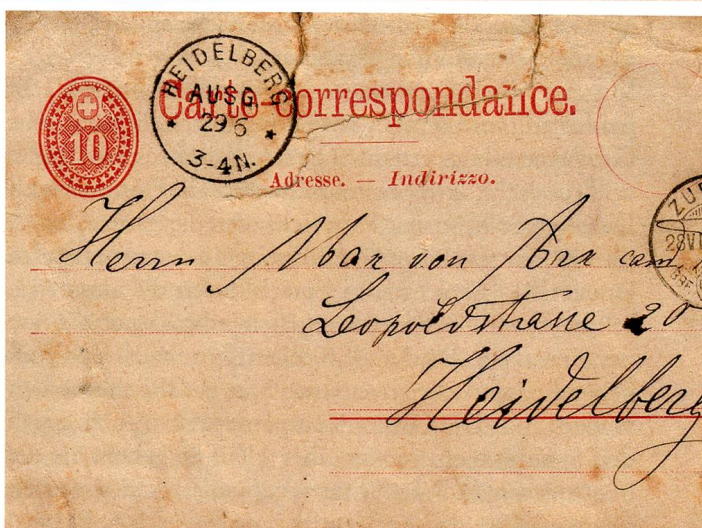 HEIDELBERG
AUSG
29 6
3-4 N.
10
Carte-correspondance.
Adresse. — Indirizzo.
ZU
28 VI
BRF
Herrn Max von Arx cam
Leopoldstrasse 20
Heidelberg